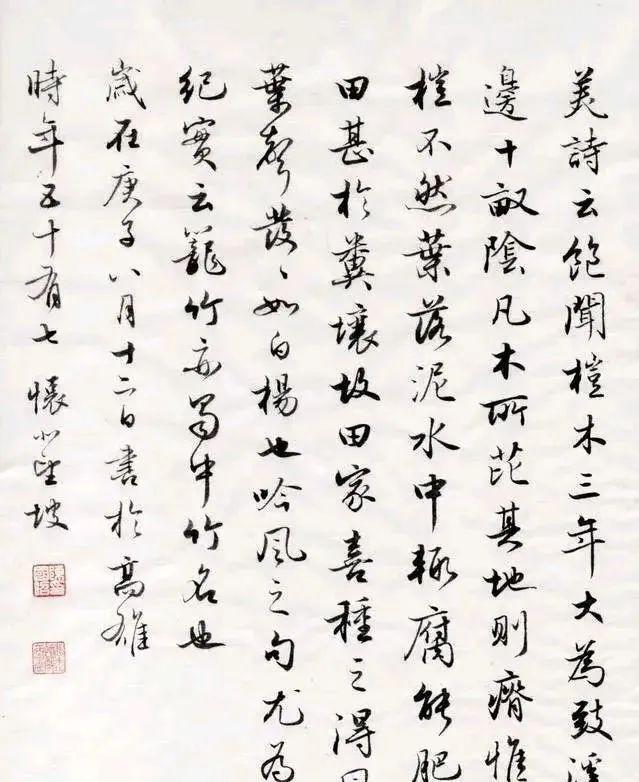 美詩云飽聞榿木三年大為致溪
邊十畝陰凡木所芘其地則瘠惟
榿不然葉落泥水中輒腐能肥
田甚於糞壤故田家喜種之得
葉聲發〻如白楊也吟風之句尤為
紀實云籠竹亦蜀中竹名也
歲在庚子八月十二日書於高雄
時年五十有七 懷
坡